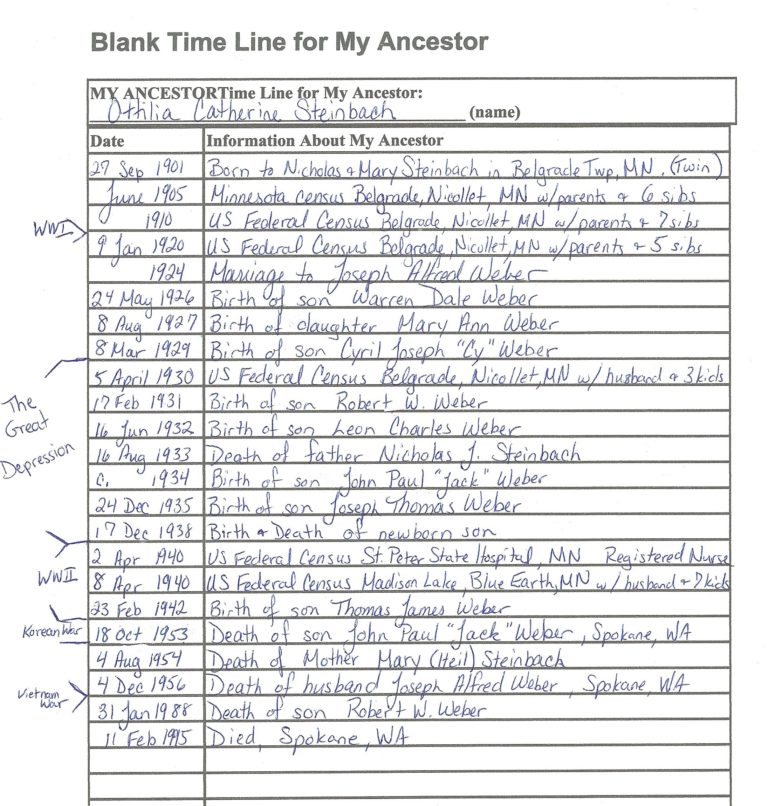 Blank Time Line for My Ancestor
MY ANCESTORTime Line for My Ancestor:
Othilia Catherine Steinbach (name)
Date Information About My Ancestor
27 Sep 1901 Born to Nicholas & Mary Steinbach in Belgrade Twp, MN. (Twin)
June 1905 Minnesota Census Belgrade, Nicollet, MN w/parents & 6 sibs
1910 US Federal Census Belgrade, Nicollet, MN w/parents & 7 sibs
WWI
9 Jan 1920 US Federal Census Belgrade, Nicollet, MN w/parents & 5 sibs
1924 Marriage to Joseph Alfred Weber
24 May 1926 Birth of son Warren Dale Weber
8 Aug 1927 Birth of daughter Mary Ann Weber
8 Mar 1929 Birth of son Cyril Joseph "Cy" Weber
5 April 1930 US Federal Census Belgrade, Nicollet, MN w/ husband & 3 kids
The
Great
Depression
17 Feb 1931 Birth of son Robert W. Weber
16 Jun 1932 Birth of son Leon Charles Weber
16 Aug 1933 Death of father Nicholas J. Steinbach
C. 1934 Birth of son John Paul "Jack" Weber
24 Dec 1935 Birth of son Joseph Thomas Weber
17 Dec 1938 Birth & Death of newborn son
2 Apr 1940 US Federal Census St. Peter State Hospital, MN Registered Nurse
WWII
8 Apr 1940 US Federal Census Madison Lake, Blue Earth, MN w/ husband & 7 kids
23 Feb 1942 Birth of son Thomas James Weber
Korean War
18 Oct 1953 Death of son John Paul "Jack" Weber, Spokane, WA
4 Aug 1954 Death of Mother Mary (Heil) Steinbach
4 Dec 1956 Death of husband Joseph Alfred Weber, Spokane, WA
Vietnam
War
31 Jan 1988 Death of son Robert W. Weber
11 Feb 1995 Died, Spokane, WA